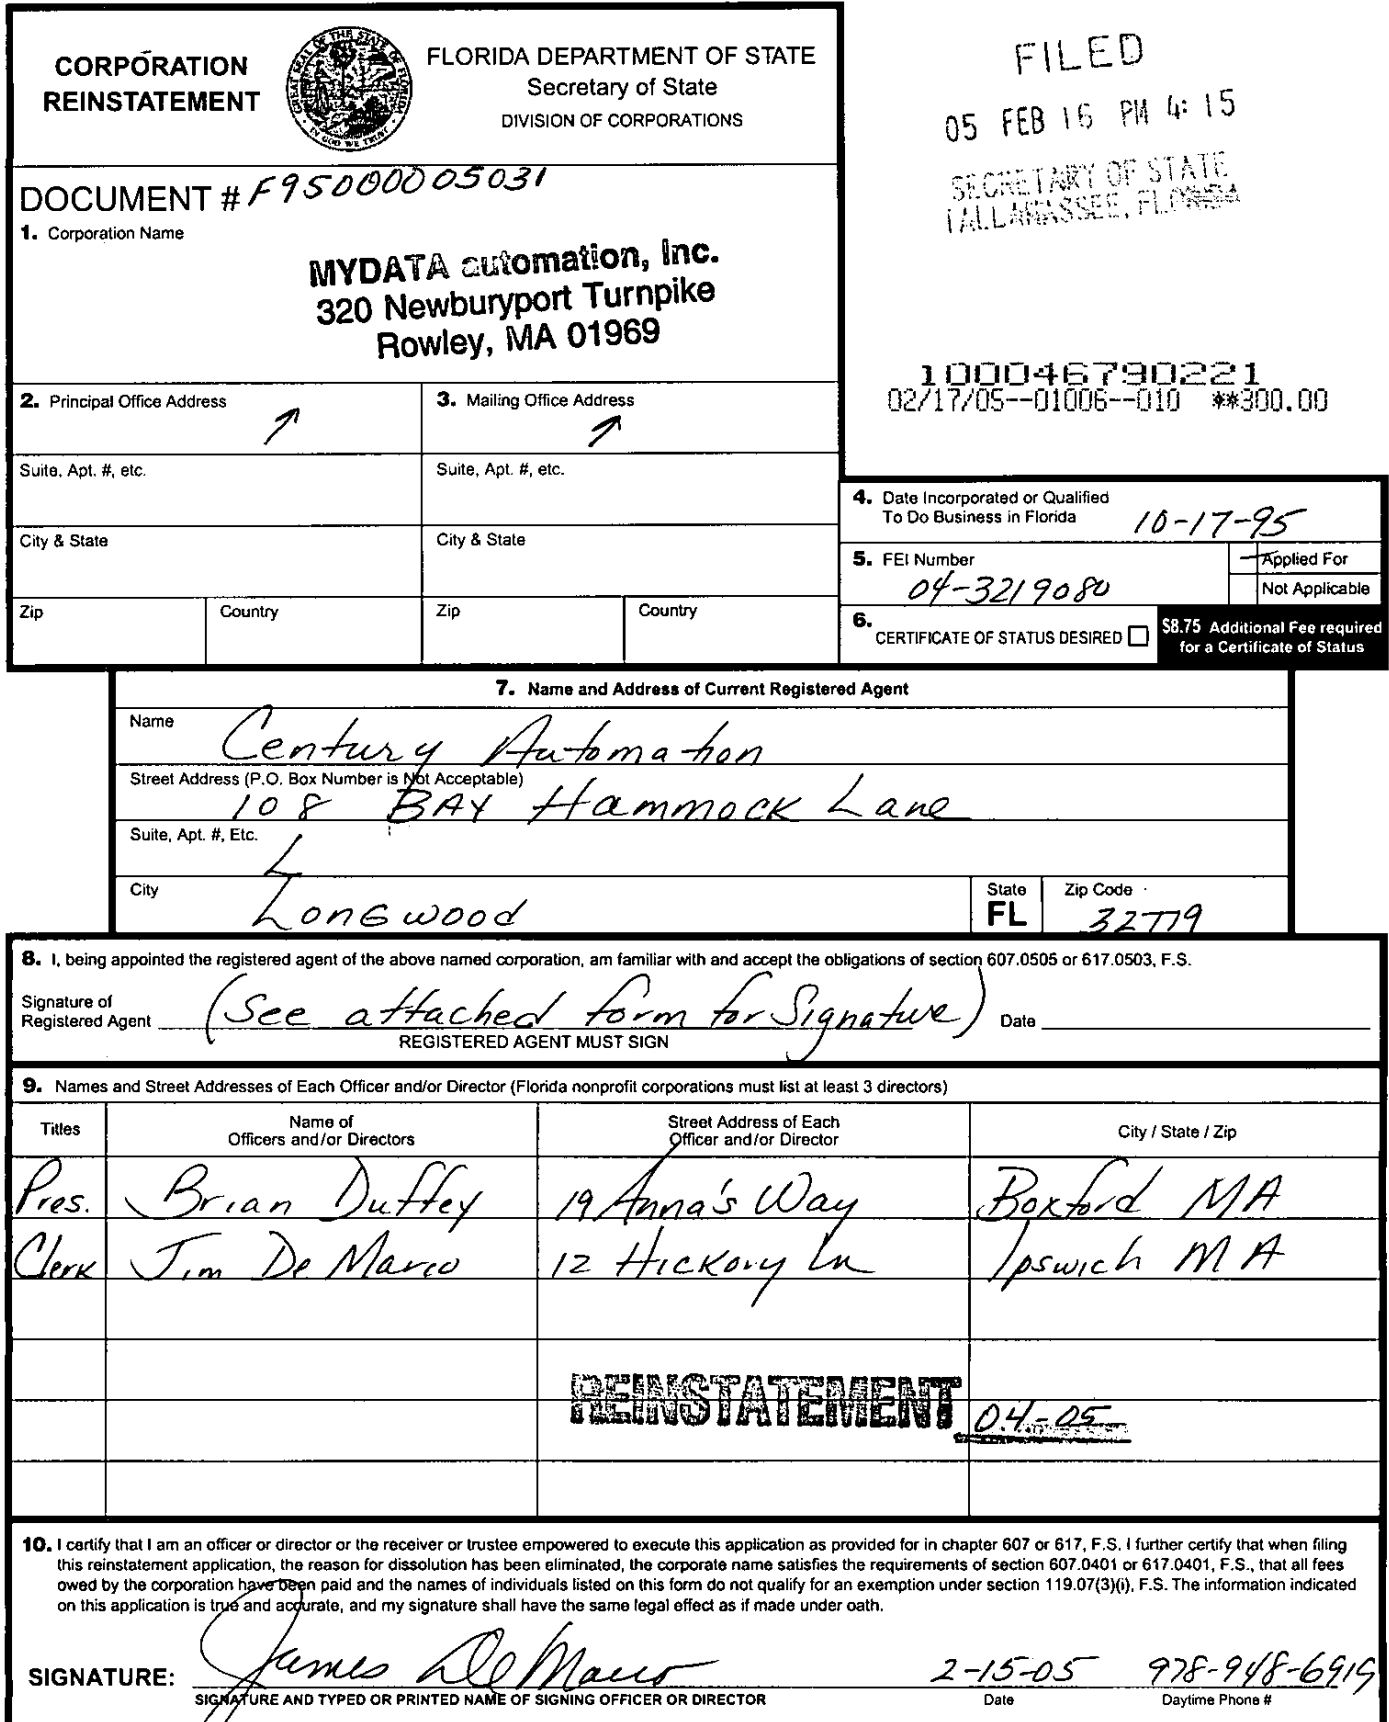 CORPORATION
REINSTATEMENT
FLORIDA DEPARTMENT OF STATE
Secretary of State
DIVISION OF CORPORATIONS
FILED
05 FEB 16 PM 4:15
SECRETARY OF STATE
TALLAHASSEE, FLORIDA
DOCUMENT # F95000005031
1. Corporation Name
MYDATA automation, Inc.
320 Newburyport Turnpike
Rowley, MA 01969
100046790221
02/17/05--01006--010 **300.00
2. Principal Office Address
3. Mailing Office Address
Suite, Apt. #, etc.
Suite, Apt. #, etc.
City & State
City & State
Zip
Country
Zip
Country
4. Date Incorporated or Qualified
To Do Business in Florida 10-17-95
5. FEI Number
04-3219080
Applied For
Not Applicable
6.
CERTIFICATE OF STATUS DESIRED
$8.75 Additional Fee required
for a Certificate of Status
7. Name and Address of Current Registered Agent
Name
Century Automation
Street Address (P.O. Box Number is Not Acceptable)
108 BAY Hammock Lane
Suite, Apt. #, Etc.
City
Longwood
State
FL
Zip Code
32779
8. I, being appointed the registered agent of the above named corporation, am familiar with and accept the obligations of section 607.0505 or 617.0503, F.S.
Signature of
Registered Agent (See attached form for Signature) Date
REGISTERED AGENT MUST SIGN
9. Names and Street Addresses of Each Officer and/or Director (Florida nonprofit corporations must list at least 3 directors)
Titles
Name of
Officers and/or Directors
Street Address of Each
Officer and/or Director
City / State / Zip
Pres. Brian Duffey 19 Anna's Way Boxford MA
Clerk Jim De Marco 12 Hickory Ln Ipswich MA
REINSTATEMENT 04-05
10. I certify that I am an officer or director or the receiver or trustee empowered to execute this application as provided for in chapter 607 or 617, F.S. I further certify that when filing
this reinstatement application, the reason for dissolution has been eliminated, the corporate name satisfies the requirements of section 607.0401 or 617.0401, F.S., that all fees
owed by the corporation have been paid and the names of individuals listed on this form do not qualify for an exemption under section 119.07(3)(i), F.S. The information indicated
on this application is true and accurate, and my signature shall have the same legal effect as if made under oath.
SIGNATURE: James De Marco 2-15-05 978-948-6919
SIGNATURE AND TYPED OR PRINTED NAME OF SIGNING OFFICER OR DIRECTOR
Date
Daytime Phone #